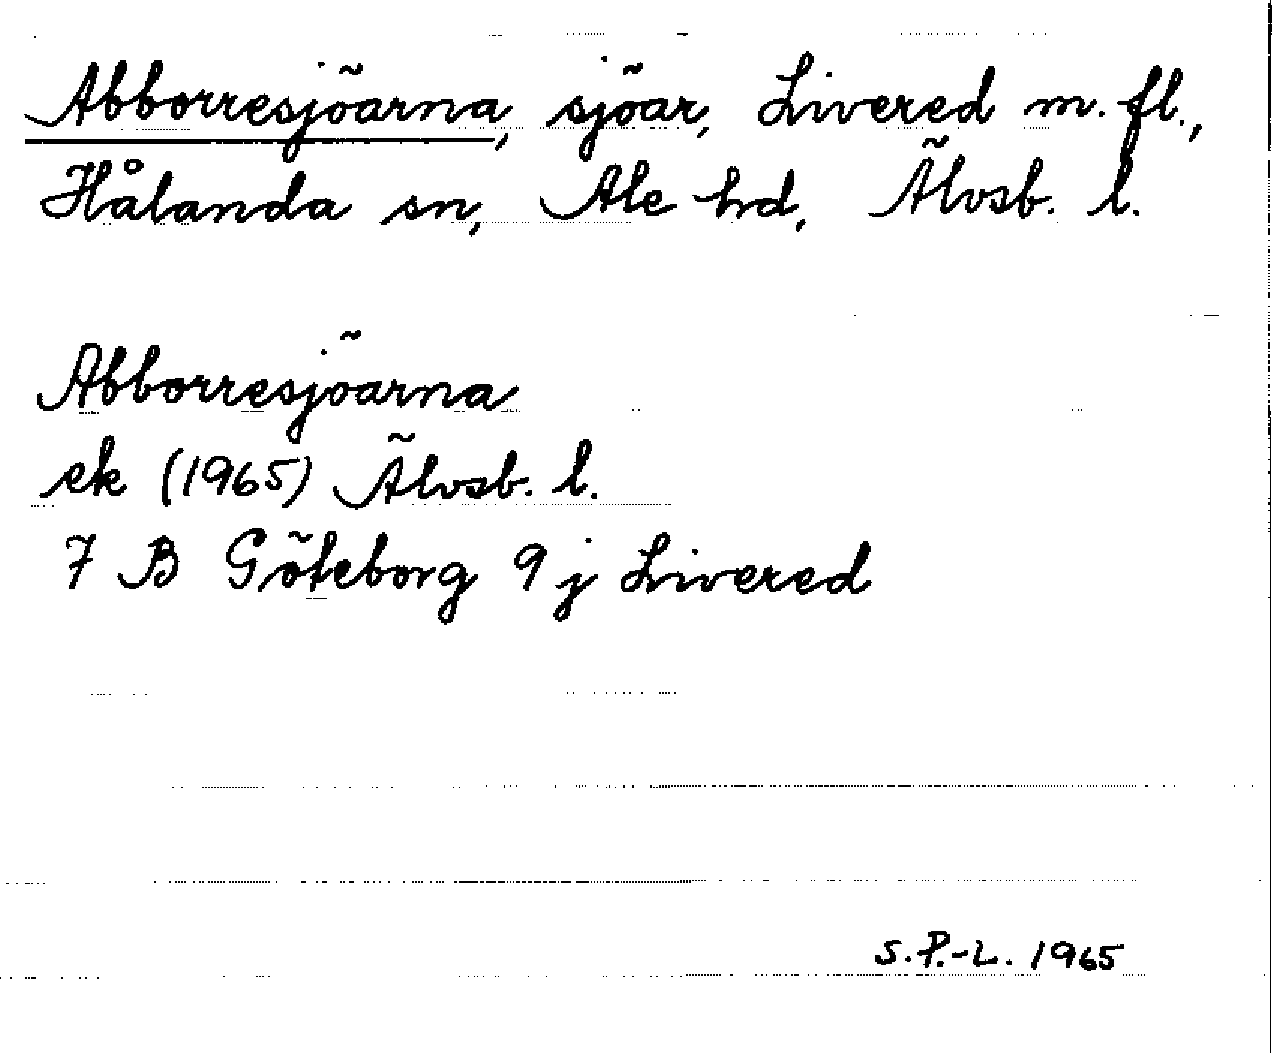 Abborresjöarna, sjöar, Livered m. fl.,
Hålanda sn, Ale hd, Älvsb. l.
Abborresjöarna
ek (1965) Älvsb. l.
7 B Göteborg 9 j Livered
S. P.-L. 1965